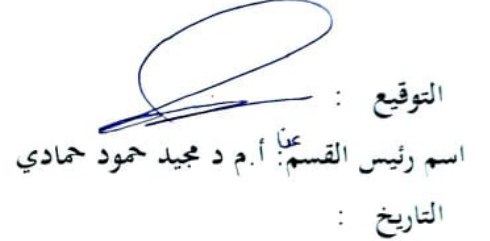 التوقيع :
اسم رئيس القسم: أ.م د مجيد حمود حمادي
التاريخ :